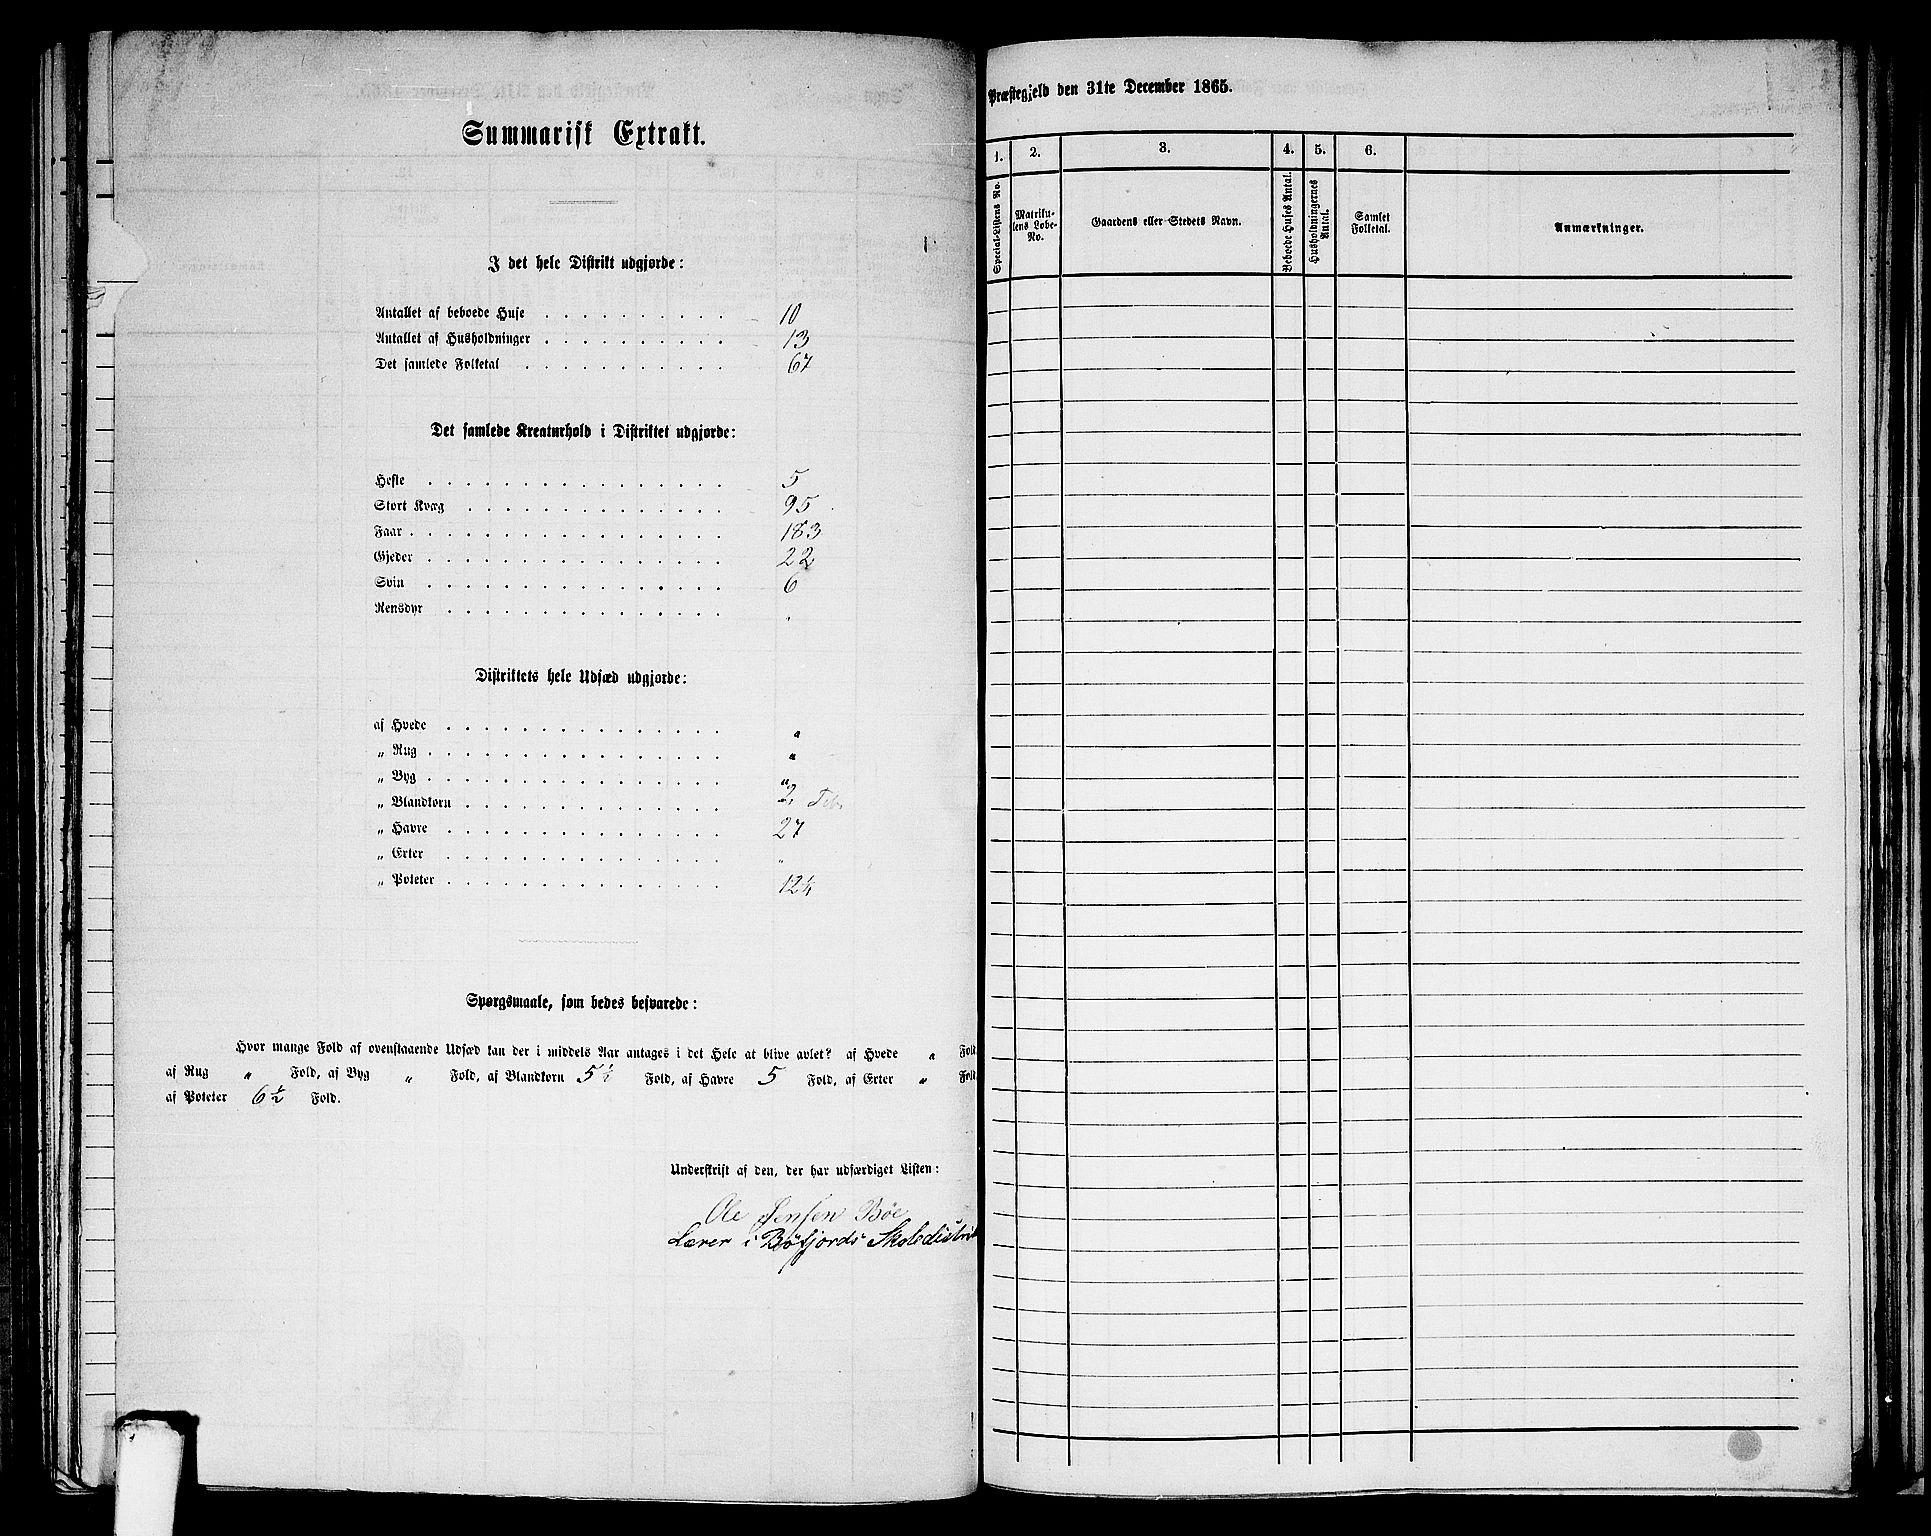 Summarisk Extrakt.
I det hele Distrikt udgjorde:
Antallet af beboede Huse . . . . . . . . . . 10
Antallet af Husholdninger . . . . . . . . . . 13
Det samlede Folketal . . . . . . . . . . . 67
Det samlede Kreaturhold i Distriktet udgjorde:
Heste . . . . . . . . . . . . . . . . 5
Stort Kvæg . . . . . . . . . . . . . . 95
Faar . . . . . . . . . . . . . . . . . 183
Gjeder . . . . . . . . . . . . . . . . 22
Svin . . . . . . . . . . . . . . . . 6
Rensdyr . . . . . . . . . . . . . . . "
Distriktets hele Udsæd udgjorde:
af Hvede . . . . . . . . . . . . . . . "
„ Rug . . . . . . . . . . . . . . . . "
„ Byg . . . . . . . . . . . . . . . . "
„ Blandkorn . . . . . . . . . . . . . . 2
„ Havre . . . . . . . . . . . . . . . 27
„ Erter . . . . . . . . . . . . . . . "
„ Poteter . . . . . . . . . . . . . . . 12¼
Spørgsmaale, som bedes besvarede:
Hvor mange Fold af ovenstaaende Udsæd kan der i middels Aar antages i det Hele at blive avlet? af Hvede " Fold,
af Rug " Fold, af Byg " Fold, af Blandkorn 5½ Fold, af Havre 5 Fold, af Erter " Fold,
af Poteter 6½ Fold.
Underskrift af den, der har udfærdiget Listen:
Ole Jensen Böe
Lærer i Böfjords Skoledistrik
Præstegjeld den 31te December 1865.
1. 2. 3. 4. 5. 6.
Special-Listens No.
Matriku-
lens Løbe-
No.
Gaardens eller Stedets Navn.
Beboede Huses Antal.
Husholdningernes
Antal.
Samlet
Folketal.
Anmærkninger.